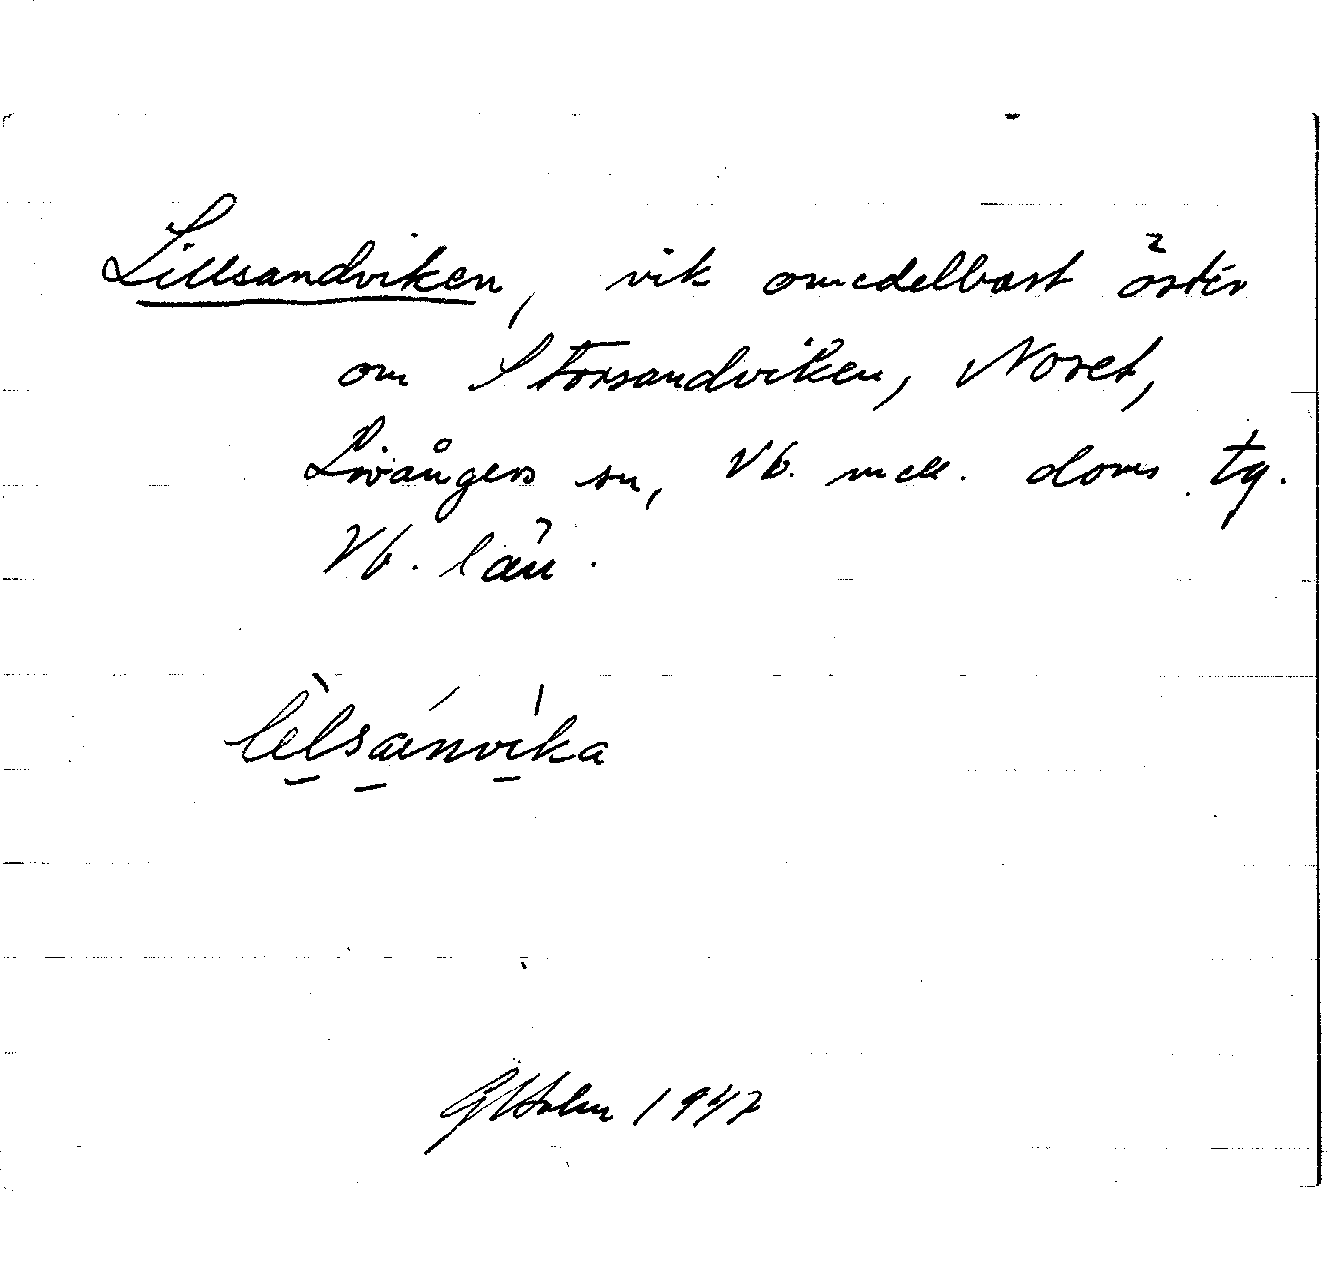 Lillsandviken, vik omedelbart öster
om Storsandviken, Noret,
Lövångers sn, Vb. mell. doms. tg.
Vb. län.
lèlsánvíka
GHolm 1947